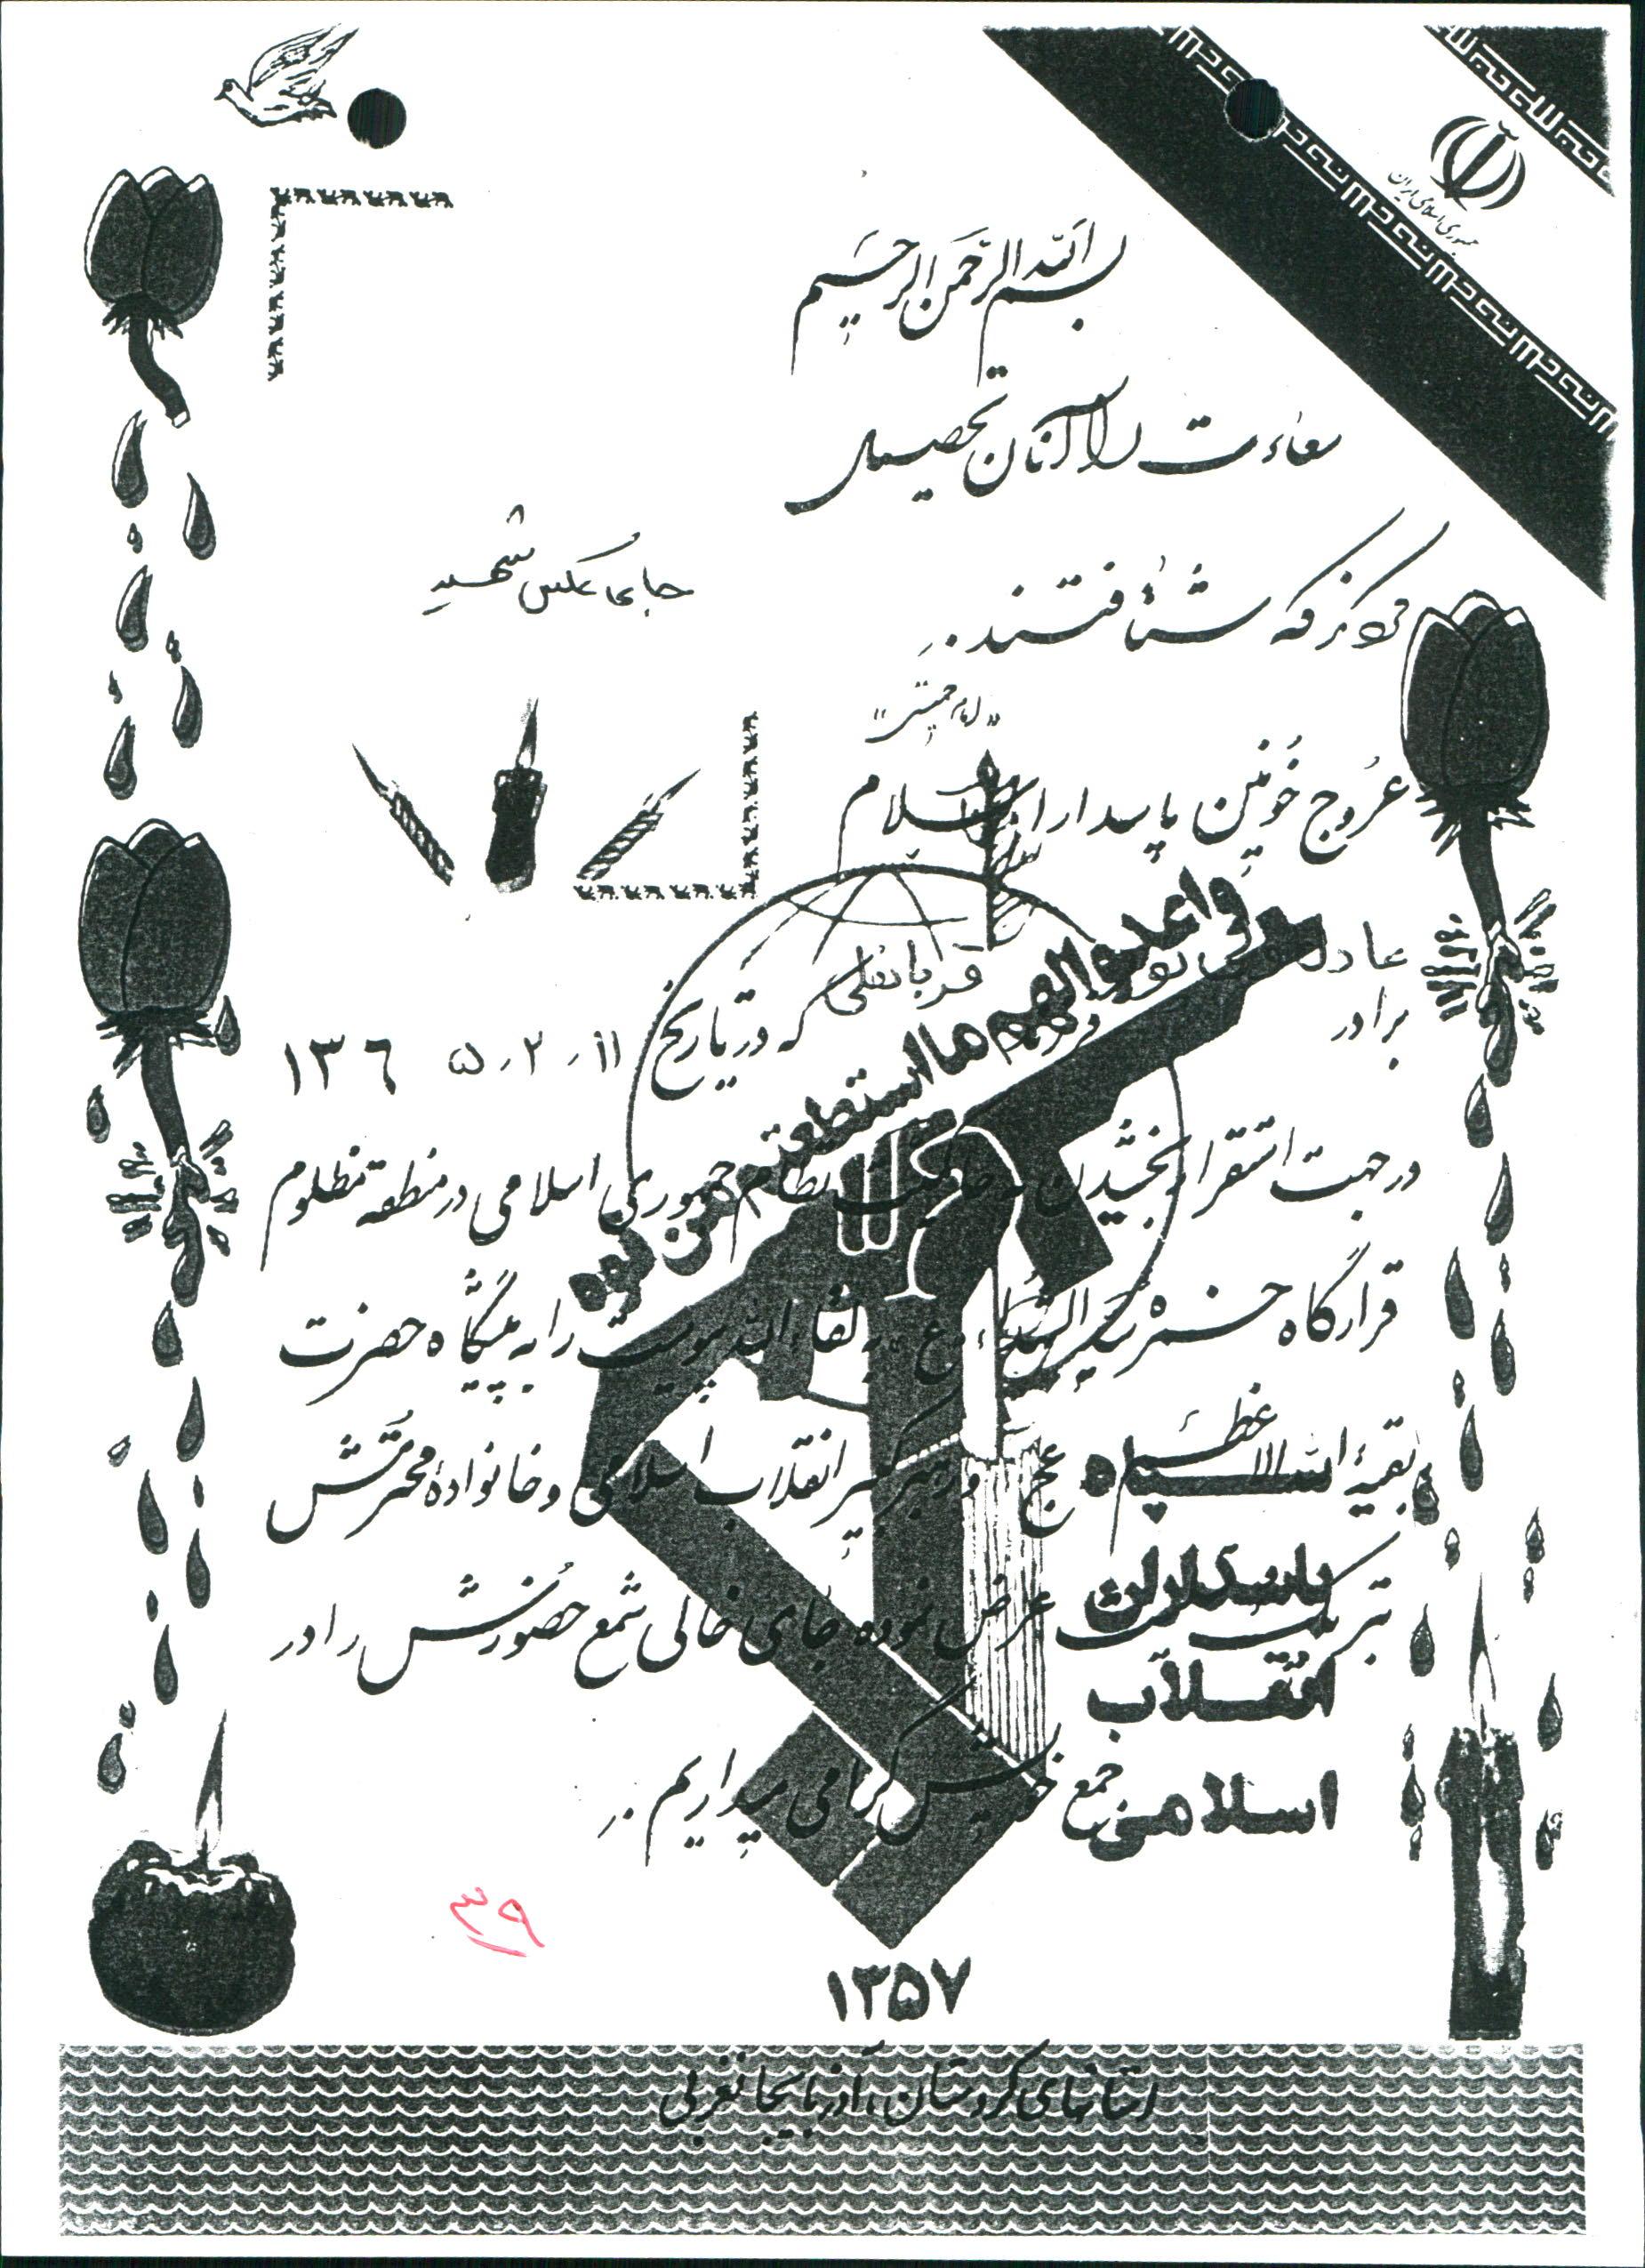 جمهوری اسلامی ایران
بسم الله الرحمن الرحیم
سعادت را آنان تحصیل
کردند که شتافتند.
"امام خمینی"
جای عکس شهید
عروج خونین پاسدار اسلام
برادر عادل قربانعلی که در تاریخ ۱۱ ر ۲ ر ۵ ۱۳۶
در جهت استقرار بخشیدن به حاکمیت نظام جمهوری اسلامی در منطقه مظلوم
قرارگاه حمزه سیدالشهداء ع به لقاء الله پیوست را به پیشگاه حضرت
بقیة الله الاعظم عج و رهبر کبیر انقلاب اسلامی و خانواده محترمش
تبریک عرض نموده جای خالی شمع حضورش را در
جمع خویش گرامی میداریم.
واعدوا لهم ما استطعتم من قوه
سپاه
پاسداران
انقلاب
اسلامی
۳۹
۱۳۵۷
استانهای کردستان، آذربایجانغربی